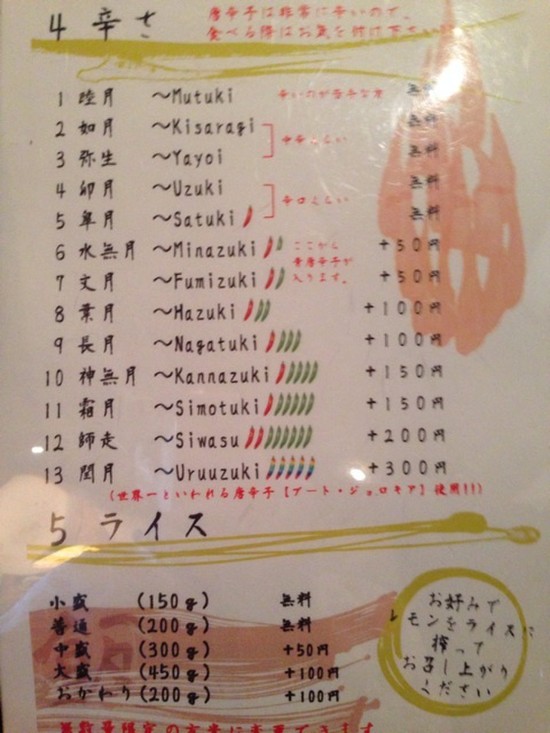 4 辛さ
唐辛子は非常に辛いので、
食べる際はお気を付け下さい
1 睦月 〜Mutuki 辛いのが苦手な方 無料
2 如月 〜Kisaragi 無料
中辛くらい
3 弥生 〜Yayoi 無料
4 卯月 〜Uzuki 無料
辛口くらい
5 皐月 〜Satuki 無料
6 水無月 〜Minazuki ここから +50円
青唐辛子が
7 文月 〜Fumizuki 入ります。 +50円
8 葉月 〜Hazuki +100円
9 長月 〜Nagatuki +100円
10 神無月 〜Kannazuki +150円
11 霜月 〜Simotuki +150円
12 師走 〜Siwasu +200円
13 閏月 〜Uruuzuki +300円
(世界一といわれる唐辛子【ブート・ジョロキア】使用!!)
5 ライス
小盛 (150g) 無料
普通 (200g) 無料
中盛 (300g) +50円
大盛 (450g) +100円
おかわり(200g) +100円
お好みで
レモンをライスに
搾って
お召し上がり
ください
数量限定の玄米に変更できます